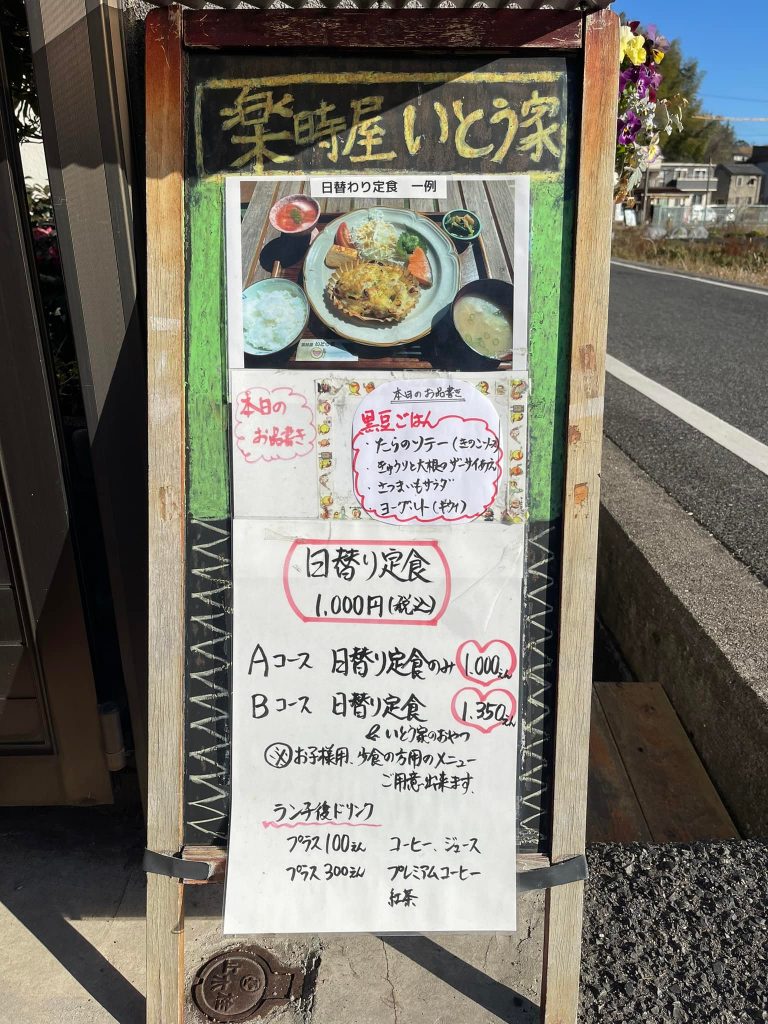 楽時屋 いとう家
日替わり定食 一例
本日の
お品書き
本日のお品書き
黒豆ごはん
・たらのソテー(きのこソース)
・きゅうりと大根のザーサイ和え
・さつまいもサラダ
・ヨーグルト(キウイ)
日替り定食
1,000円(税込)
Aコース 日替り定食のみ 1.000えん
Bコース 日替り定食 1.350えん
& いとう家のおやつ
※お子様用、少食の方用のメニュー
ご用意出来ます.
ランチ後ドリンク
プラス100えん コーヒー、ジュース
プラス300えん プレミアムコーヒー
紅茶